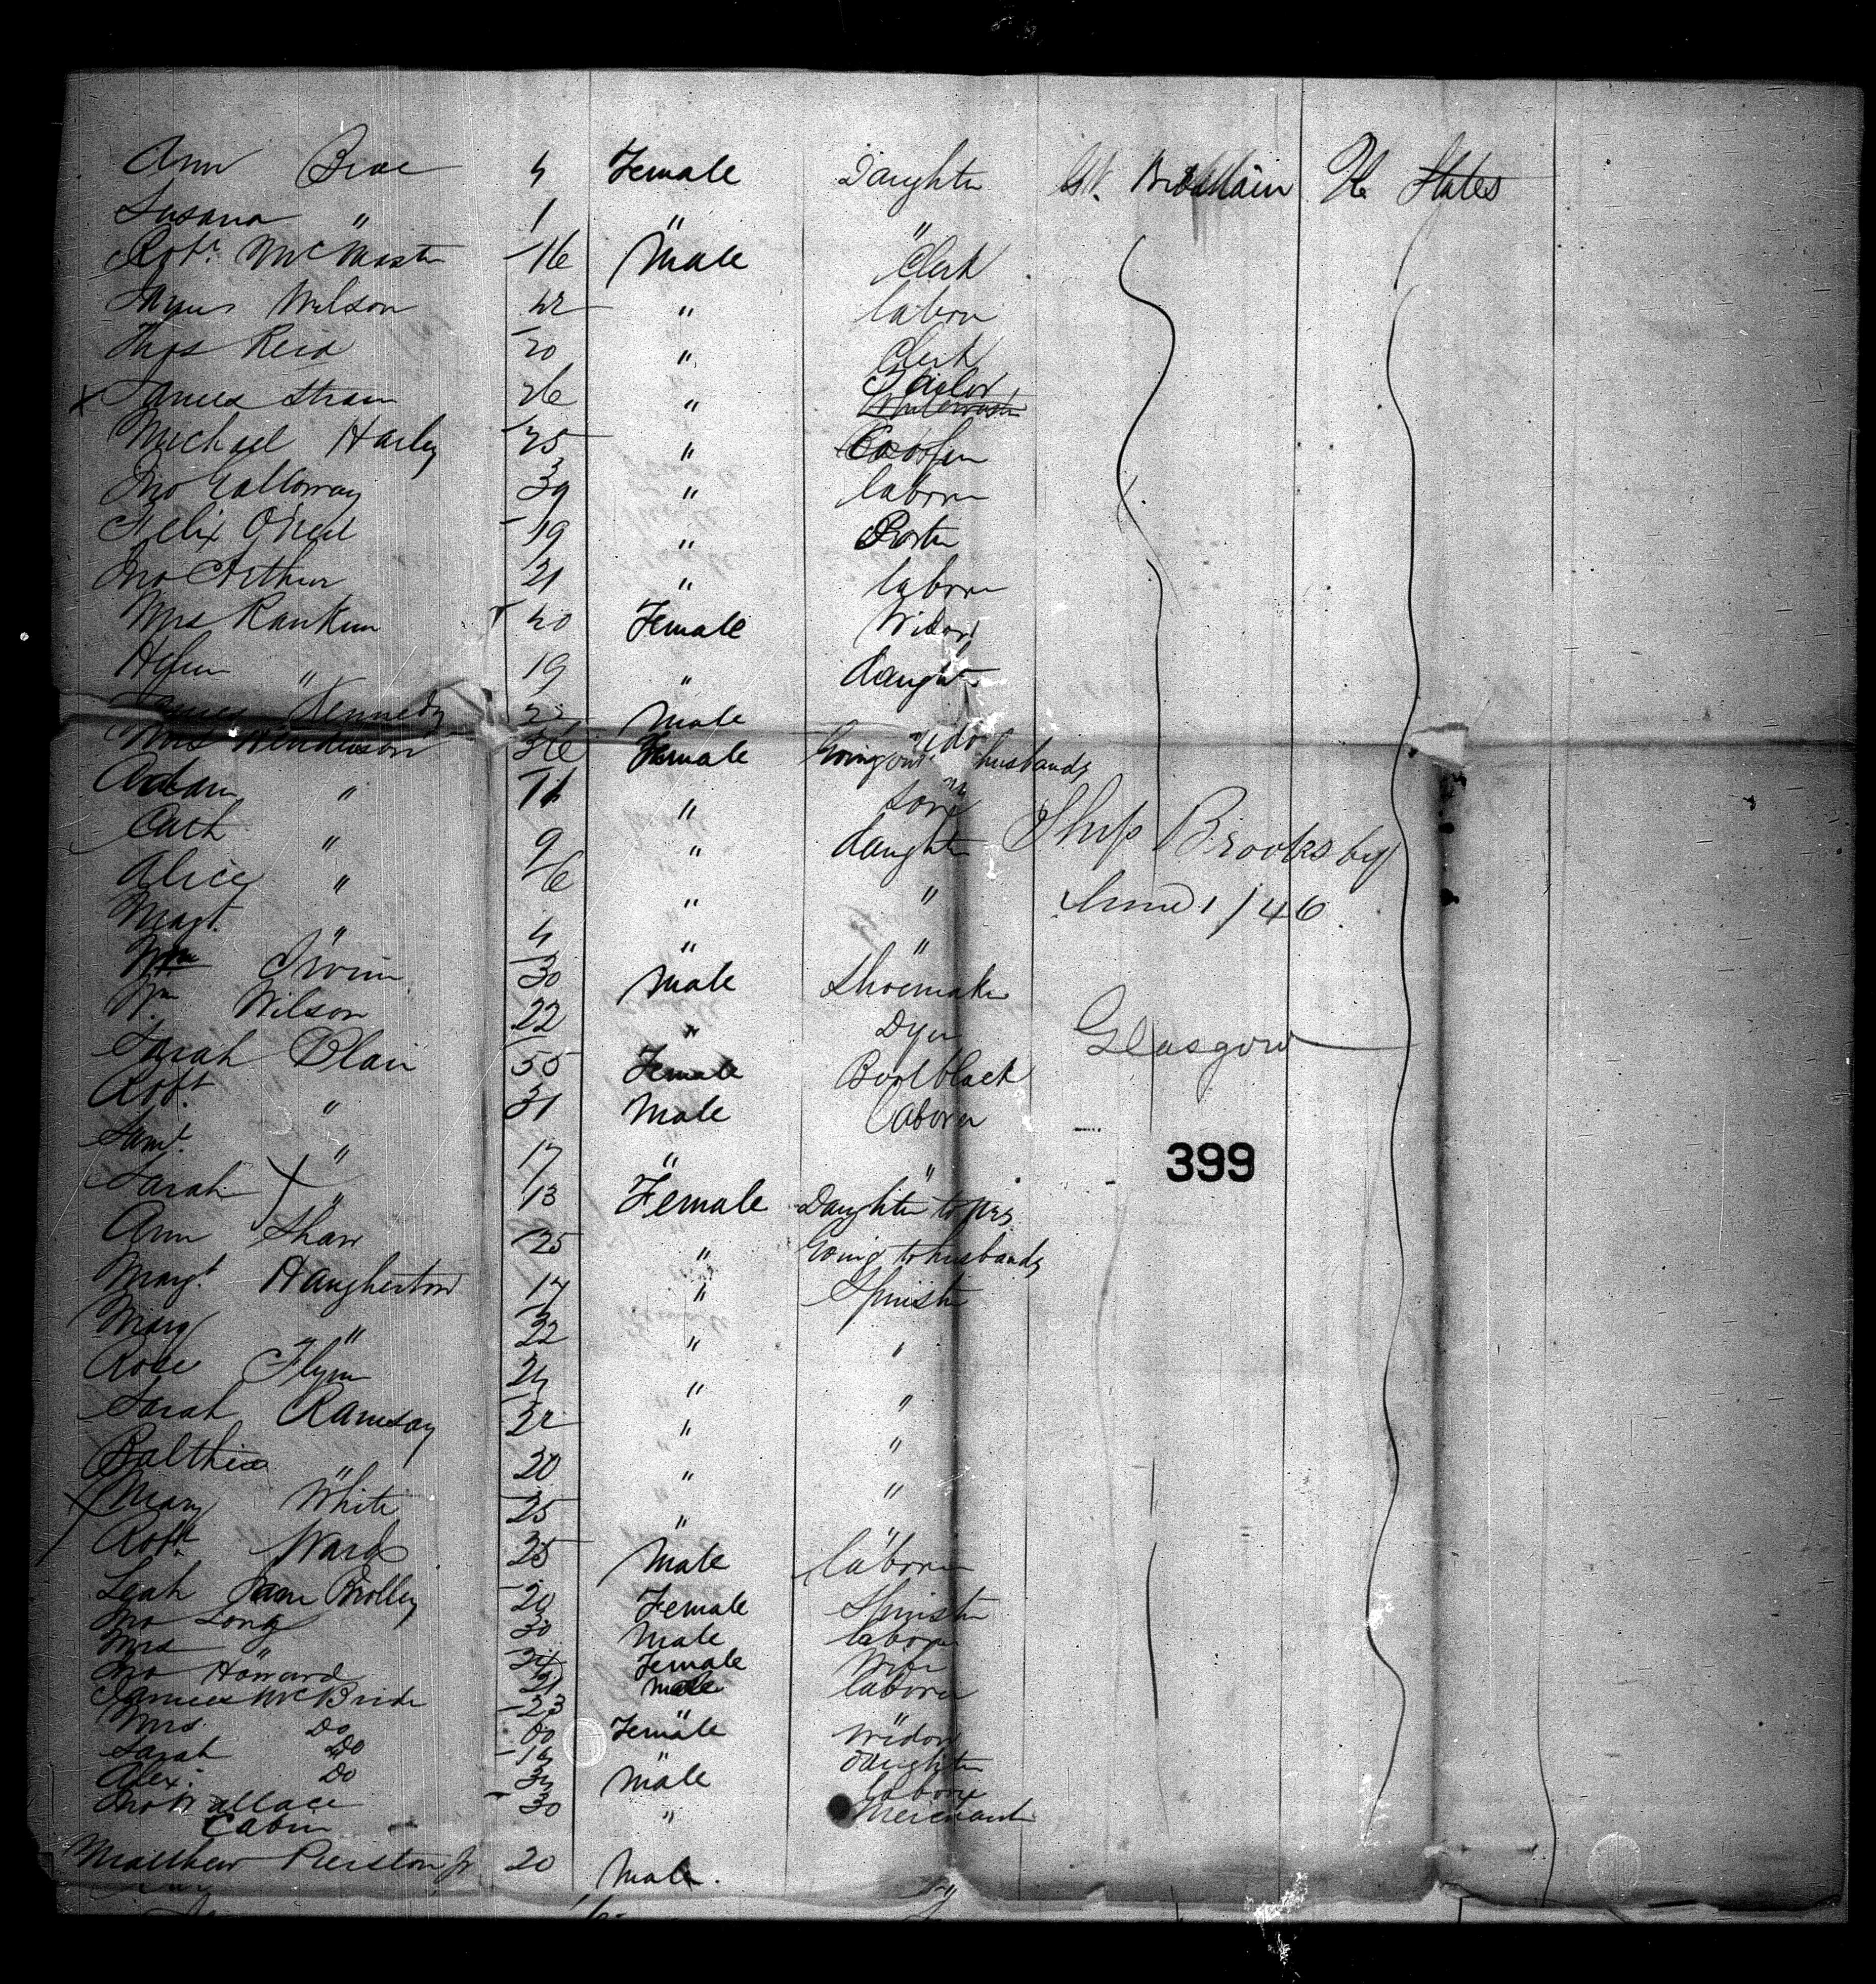 Ann Brae 4 Female Daughter Gt. Brittain U States
Susana " 1 " "
Robt. McMaster 16 Male Clerk
Wilson 42 " labore
Thos Reid 20 " Clerk
James Strain 26 " Tailor
Michael Harley 25 "
Jno Galloway 39 " laborer
Felix O'Neil 19 " Porter
Jno Arthur 21 " laborer
Mrs Rankin 40 Female Widow
Helen " 19 " daughter
James Kennedy 22 Male
Mrs Henderson 36 Female Going out husbands
Adam " 11 " son
Cath " 9 " daughter Ship Brooksby
Alice " 6 " " June 1/46
Magt. " 4 " "
Irvin 30 Male Shoemaker
Wm Wilson 22 " Dyer Glasgow
Sarah Blair 55 Female Bootblack
Robt. " 31 Male laborer
Saml. " 17 " "
399
Sarah " 13 Female Daughter to Mrs
Ann Shaw 25 " Going to husbands
Margt. Haugherton 17 " Spinster
Mary " 22 " "
Rose Flynn 24 " "
Sarah Ramsay 22 " "
Balthia " 20 " "
Mary White 25 " "
Robt. Ward 25 Male laborer
Leah Jane Brolley 20 Female Spinster
Jno Long 30 Male laborer
Mrs " Female Wife
Jno Howard 21 Male laborer
James McBride 23 " "
Mrs. Do 60 Female Widow
Sarah Do " daughter
Alex. Do Male laborer
Jno Wallace 30 " Merchant
Cabin
Matthew Pierston Jr 20 Male.